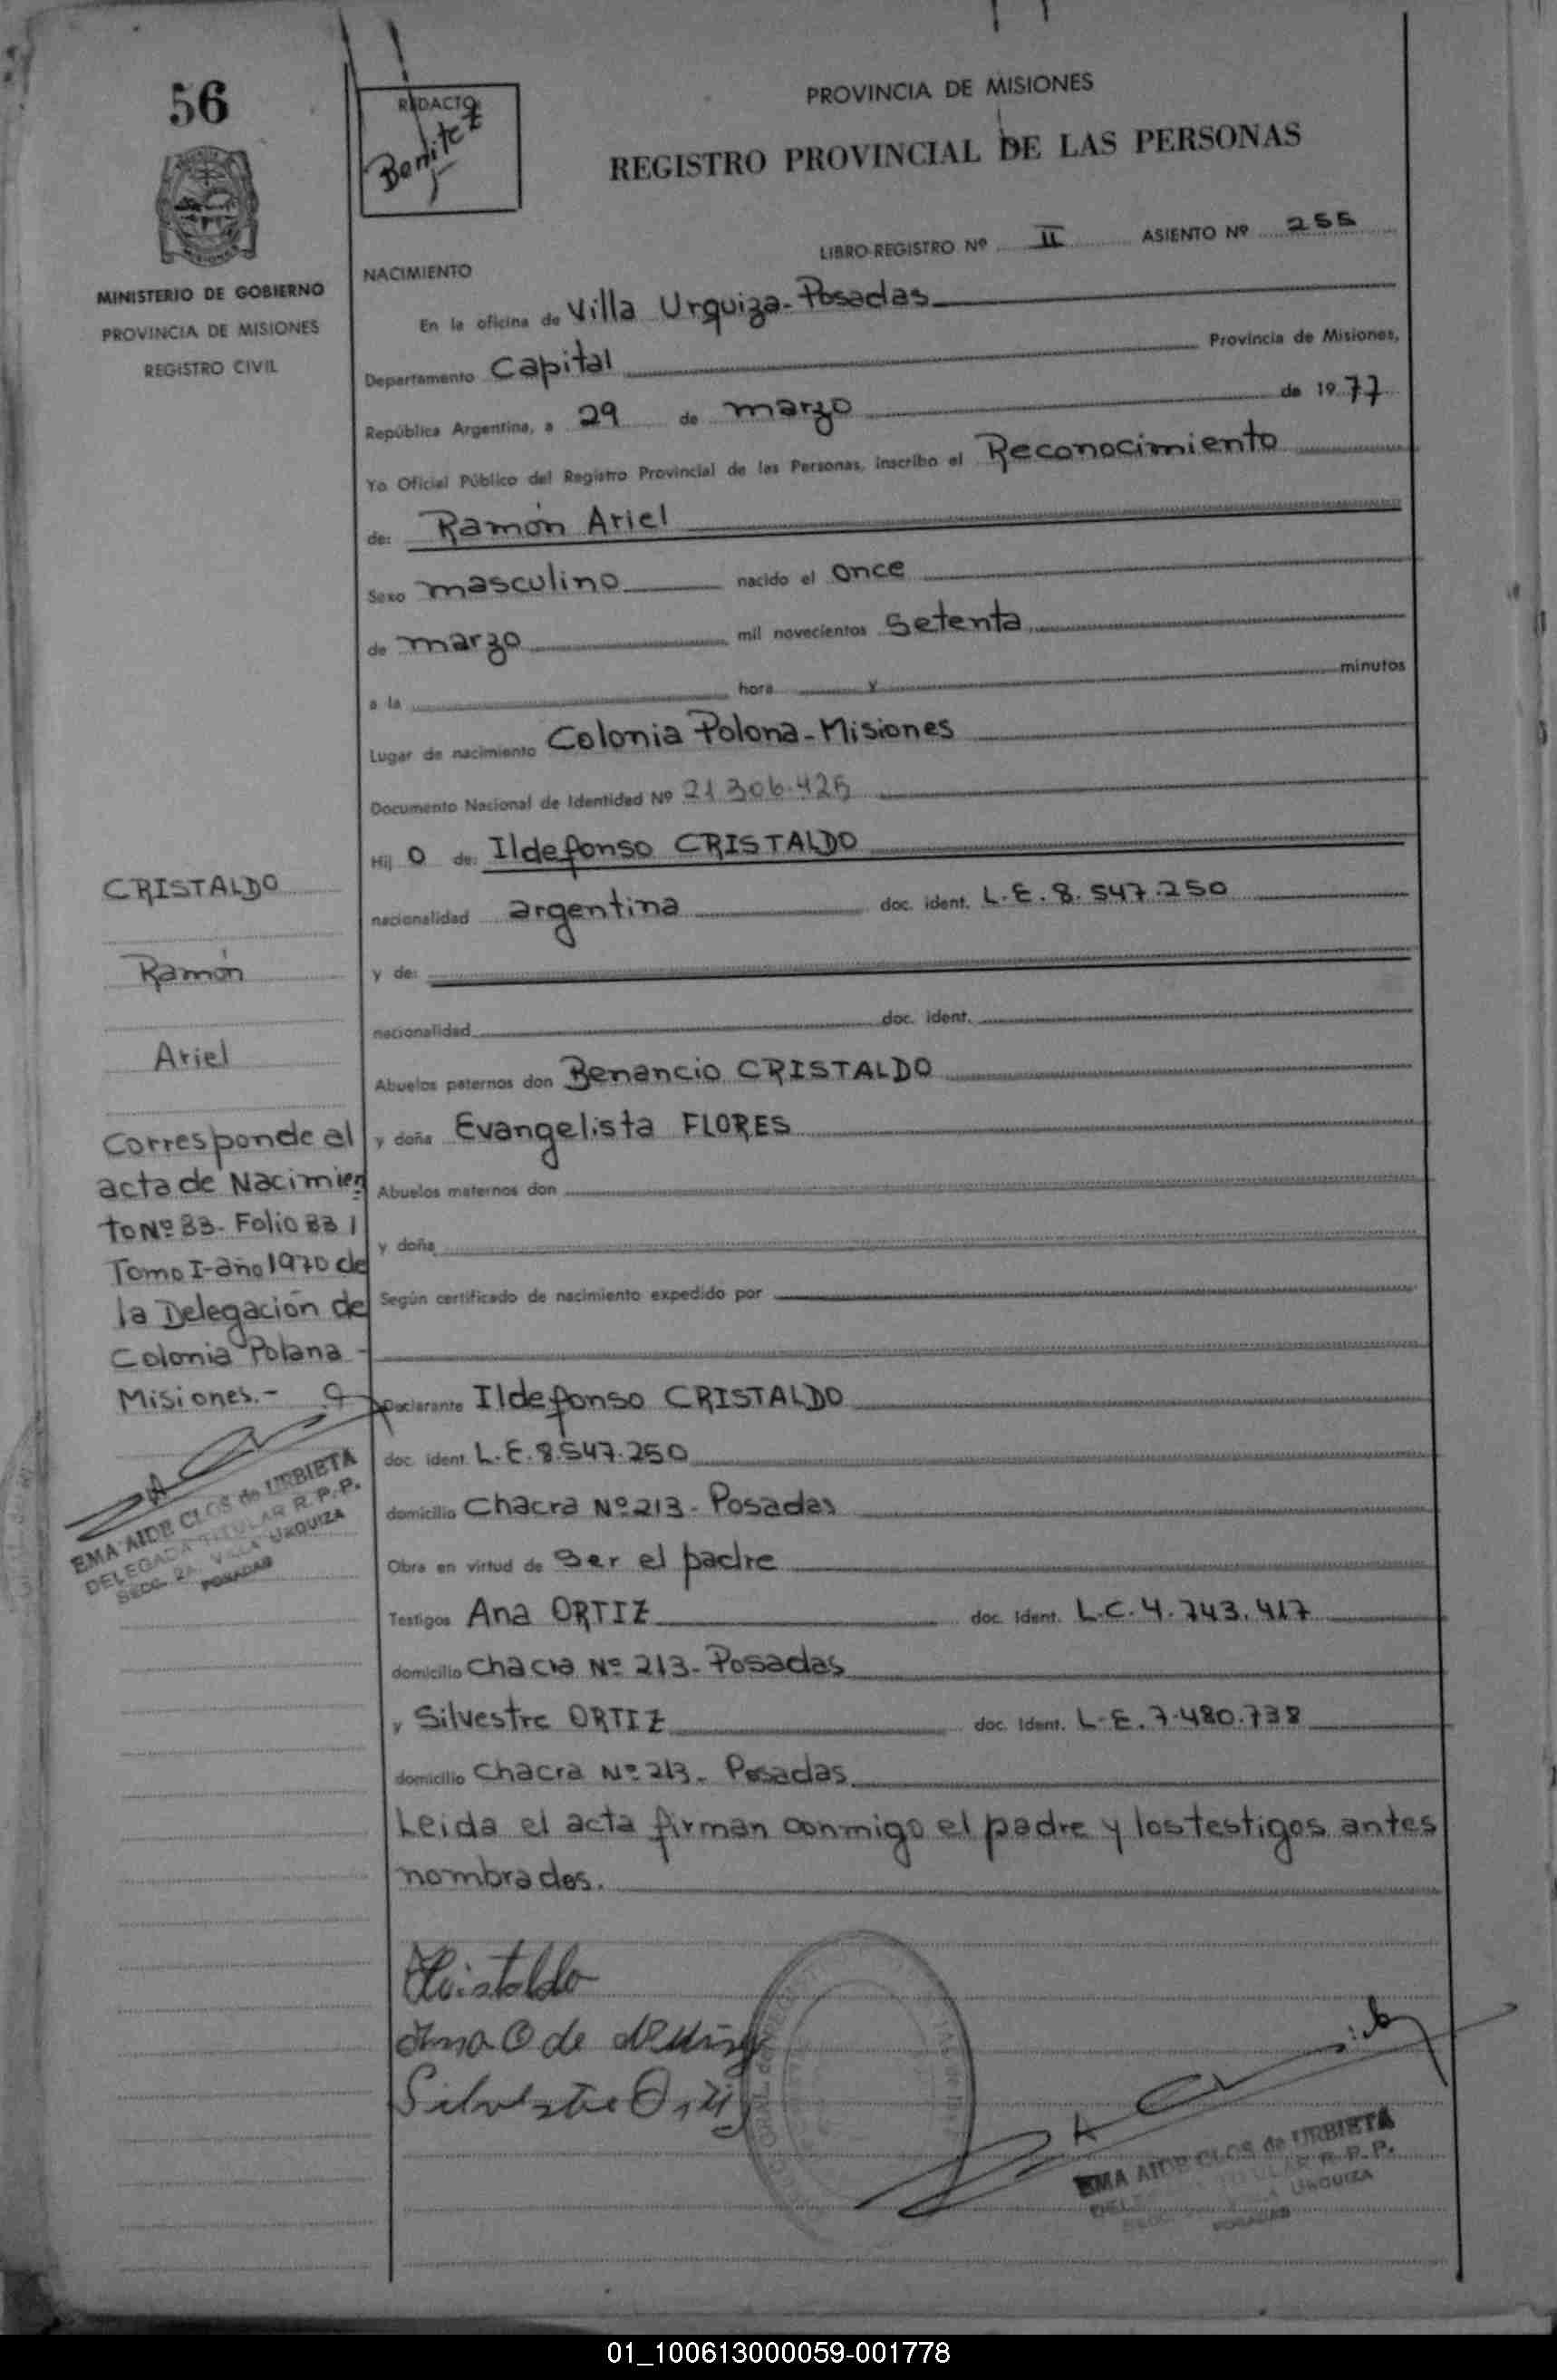 56
REDACTO:
Benitez
PROVINCIA DE MISIONES
REGISTRO PROVINCIAL DE LAS PERSONAS
LIBRO-REGISTRO Nº II ASIENTO Nº 255
MINISTERIO DE GOBIERNO
PROVINCIA DE MISIONES
REGISTRO CIVIL
NACIMIENTO
En la oficina de Villa Urquiza - Posadas
Departamento Capital Provincia de Misiones,
República Argentina, a 29 de marzo de 1977
Yo Oficial Público del Registro Provincial de las Personas, inscribo el Reconocimiento
de: Ramón Ariel
Sexo masculino nacido el once
de marzo mil novecientos setenta
a la hora y minutos
Lugar de nacimiento Colonia Polona - Misiones
Documento Nacional de Identidad Nº 21.306.425
Hij o de: Ildefonso CRISTALDO
nacionalidad argentina doc. ident. L.E. 8.547.250
y de:
nacionalidad doc. ident.
Abuelos paternos don Benancio CRISTALDO
y doña Evangelista FLORES
Abuelos maternos don
y doña
Según certificado de nacimiento expedido por
Declarante Ildefonso CRISTALDO
doc. ident. L.E. 8.547.250
domicilio Chacra Nº 213 - Posadas
Obra en virtud de ser el padre
Testigos Ana ORTIZ doc. ident. L.C. 4.743.417
domicilio Chacra Nº 213 - Posadas
y Silvestre ORTIZ doc. ident. L.E. 7.480.738
domicilio Chacra Nº 213 - Posadas
Leida el acta firman conmigo el padre y los testigos antes
nombrados.
CRISTALDO
Ramón
Ariel
Corresponde al
acta de Nacimien
to Nº 83 - Folio 83
Tomo I - año 1970 de
la Delegación de
Colonia Polana -
Misiones.-
EMA AIDE CLOS de URBIETA
DELEGADA TITULAR R. P. P.
SECC. 2A. VILLA URQUIZA
POSADAS
Cristaldo
Ana O de
Silvestre Ortiz
EMA AIDE CLOS de URBIETA
DELEGADA TITULAR R. P. P.
SECC. 2A. VILLA URQUIZA
POSADAS
01_100613000059-001778